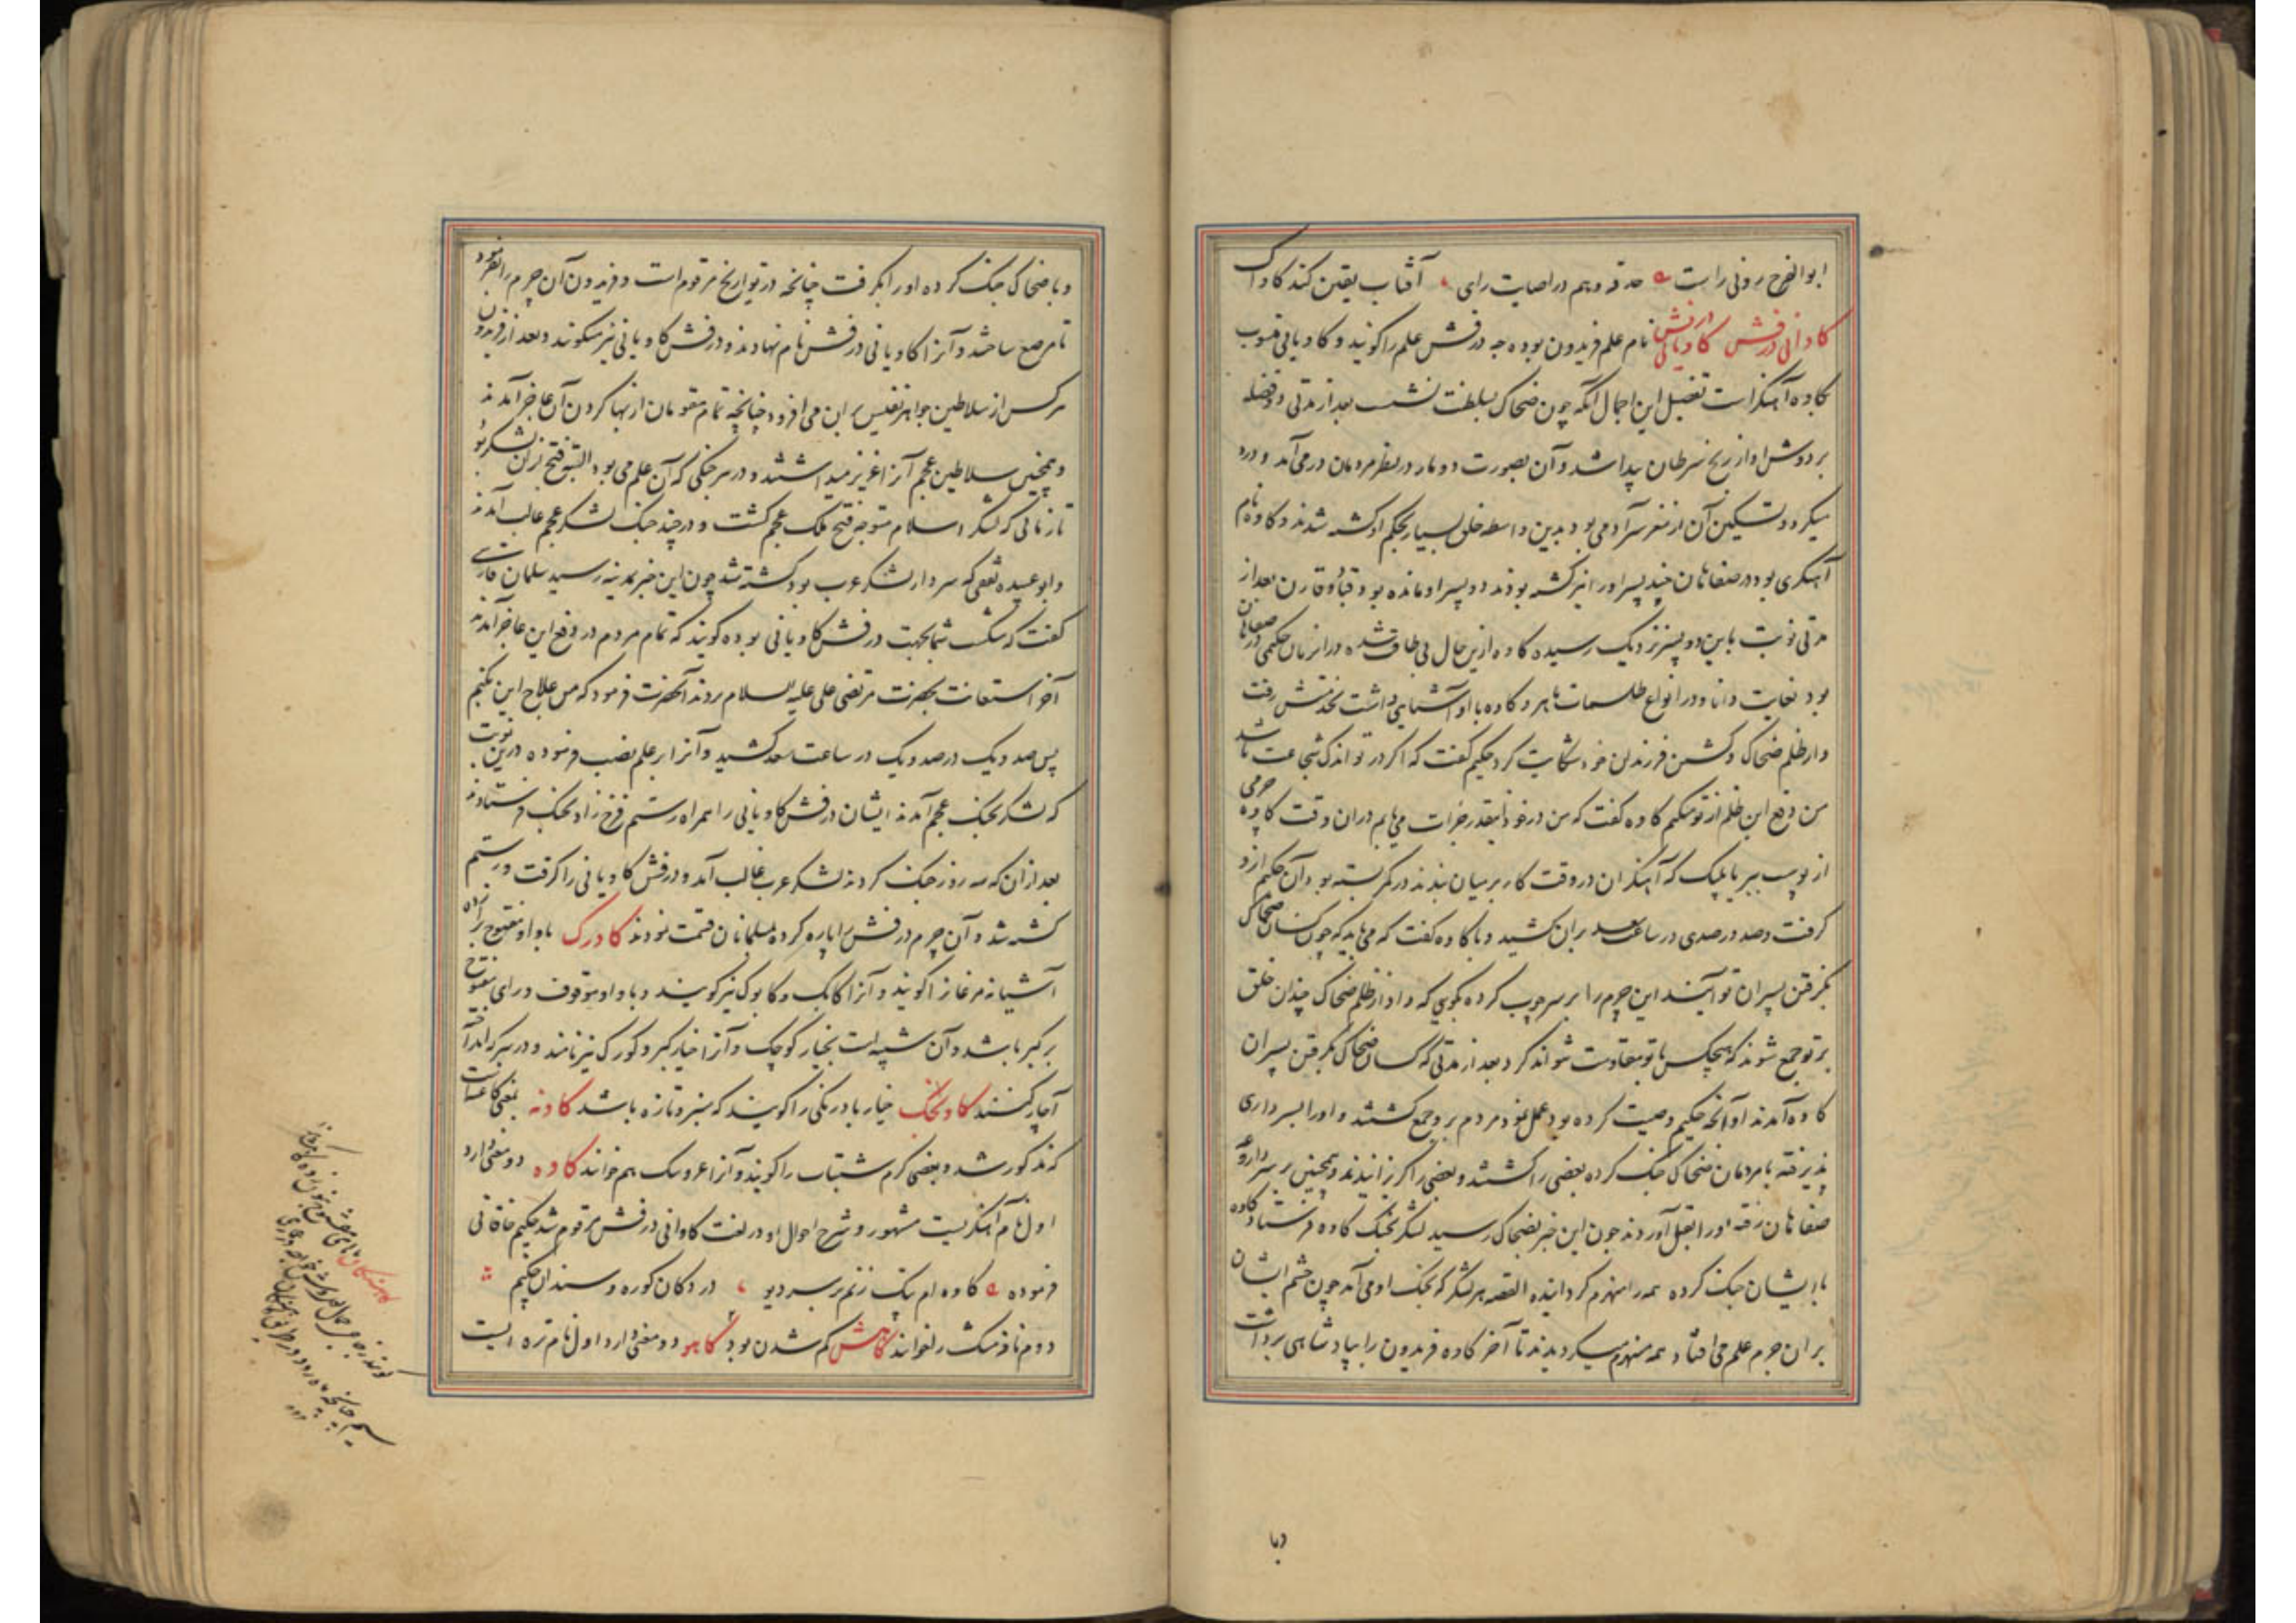 ابوالفرح رونی راست حدقه وهم در اصابت رای آفتاب یقین کند کاواک
کاوانی درفش کاویانی درفش نام علم فریدون بوده چه درفش علم را کویند و کاویانی منسوب
بکاوه آهنگر است تفصیل این اجمال آنکه چون ضحاک بسلطنت نشست بعد از مدتی دو فضله
بر دوش او از رنج سرطان پیدا شد و آن بصورت دو مار در نظر مردمان در می آمد و درد
میکرد و تسکین آن از مغز سر آدمی بود بدین واسطه خلق بسیار بحکم او کشته شدند و کاوه نام
آهنکری بود در صفاهان چند پسر او را نیز کشته بودند دو پسر او مانده بود قباد و قارن بعد از
مدتی نوبت باین دو پسر نزدیک رسیده کاوه ازین حال بی طاقت شده در انزمان حکیمی در صفاهان
بود بغایت دانا و در انواع طلسمات ماهر و کاوه با او آشنایی داشت بخدمتش رفت
و از ظلم ضحاک و کشتن فرزندان خود شکایت کرد حکیم کفت که اکر در تو اندک شجاعت باشد
من دفع این ظلم از تو میکنم کاوه کفت که من در خود اینقدر جرات می یابم دران وقت کاوه چرمی
از پوست ببر یا پلنک که آهنکران در وقت کار بر میان بندند در کمر بسته بود آن حکیم ازو
کرفت و صد در صدی در ساعت سعد بران کشید و با کاوه کفت که می باید که چون کسان ضحاک
بکرفتن پسران تو آیند این چرم را بر سر چوب کرده بکویی که داد از ظلم ضحاک چندان خلق
بر تو جمع شوند که هیچکس با تو مقاومت نتواند کرد بعد از مدتی که کسان ضحاک بکرفتن پسران
کاوه آمدند او آنچه حکیم وصیت کرده بود عمل نمود مردم برو جمع کشتند و او را بسرداری
پذیرفته با مردمان ضحاک جنک کرده بعضی را کشتند و بعضی را کریزانیدند و همچنین بر سر داروغه
صفاهان رفته او را بقتل آوردند چون این خبر بضحاک رسید لشکر بجنک کاوه فرستاد کاوه
با ایشان جنک کرده همه را منهزم کردانیده القصه هر لشکر که بجنک او می آمد چون چشم ایشان
بر ان چرم علم می افتاد همه منهزم میکردیدند تا آخر کاوه فریدون را بپادشاهی برداشت
وبا
و با ضحاک جنک کرده او را بکرفت چنانچه در تواریخ مرقوم است و فریدون آن چرم را بفرمود
تا مرصع ساختند و آنرا کاویانی درفش نام نهادند و درفش کاویانی نیز میکویند و بعد از فریدون
هر کس از سلاطین جواهر نفیس بر این می افزود چنانچه تمام مقومان از بها کردن آن عاجز آمدند
و همچنین سلاطین عجم آنرا عزیز میداشتند و در هر جنکی که آن علم می بود البته فتح ازان لشکر بود
تا زمانی که لشکر اسلام متوجه فتح ملک عجم کشت و در چند جنک لشکر عجم غالب آمدند
و ابو عبیده ثقفی که سردار لشکر عرب بود کشته شد چون این خبر بمدینه رسید سلمان فارسی
کفت که شکست شما بجهت درفش کاویانی بوده کویند که تمام مردم در دفع این عاجز آمدند
آخر استعانت بحضرت مرتضی علی علیه السلام بردند آنحضرت فرمود که من علاج این بکنم
پس صد و یک در صد و یک در ساعت سعد کشید و آنرا بر علم نصب فرموده درین نوبت
که لشکر بجنک عجم آمدند ایشان درفش کاویانی را همراه رستم فرخ زاد بجنک فرستادند
بعد ازان که سه روز جنک کردند لشکر عرب غالب آمد و درفش کاویانی را کرفت و رستم
کشته شد و آن چرم درفش را پاره کرده مسلمانان قسمت نمودند کاورک با واو مفتوح براء زده
آشیانه مرغانرا کویند و آنرا کابک و کابوک نیز کویند و با واو موقوف و رای مفتوح
بر کبر باشد و آن شبیه است بخیار کوچک و آنرا خیار کبر و کورک نیز نامند و در سرکه انداخته
آچار کنند کاونجک خیار بادرنکی را کویند که سبز و تازه باشد کاونه بمعنی کاغنه است
که مذکور شد و بعضی کرم شبتاب را کویند و آنرا عروسک هم خوانند کاوه دو معنی دارد
اول نام آهنکریست مشهور و شرح احوال او در لغت کاوانی درفش مرقوم شد حکیم خاقانی
فرموده کاوه ام پتک زنم بر سر دیو در دکان کوره و سندان چکنم
دوم نافه مشک را خوانند کاهش کم شدن بود کاهو دو معنی دارد اول نام تره ایست